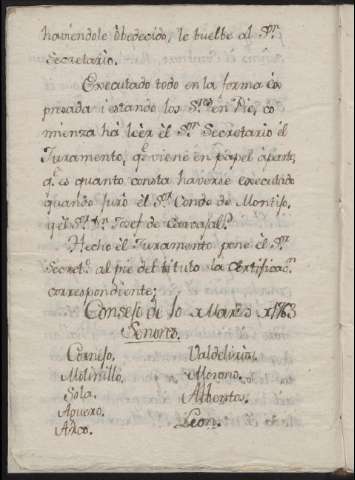 haviendole obedecido, lo buelbe al S.r
Secretario.
Executado todo en la forma ex
presada i estando los S.res en Pie, co
mienza há leèr èl S.or Secretario èl
Juramento, q.e viene en papel àparte,
q.e es quanto consta haverse executado
quando jurò el S.or Conde de Montijo,
y el S.or D.n Josef de Carvajal.
Hecho èl Juramento pone èl S.or
Secret.o al pie del titulo la Certificaz.on
correspondiente;
Consejo de 10 Marzo 1763
Señores.
Cornejo. Valdelirios.
Molinillo. Moreno.
Sola.
Aguero. Leon.
Arco.